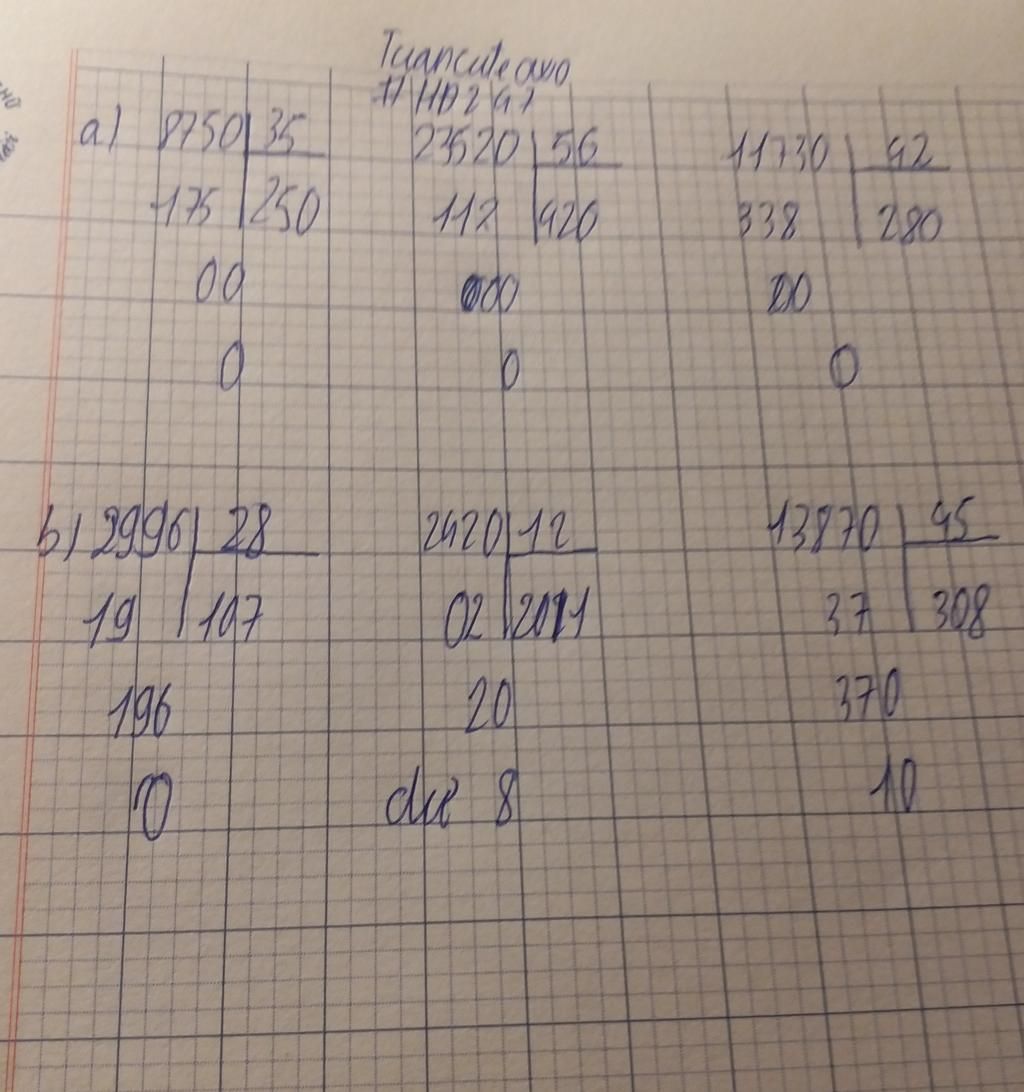 Tuancuteouo
#HD247
a) 8750 35 23520 56 11730 42
175 250 112 420 338 280
00 000 20
0 0 0
b) 2996 28 2420 12 13870 45
19 107 02 2011 37 308
196 20 370
0 dư 8 10